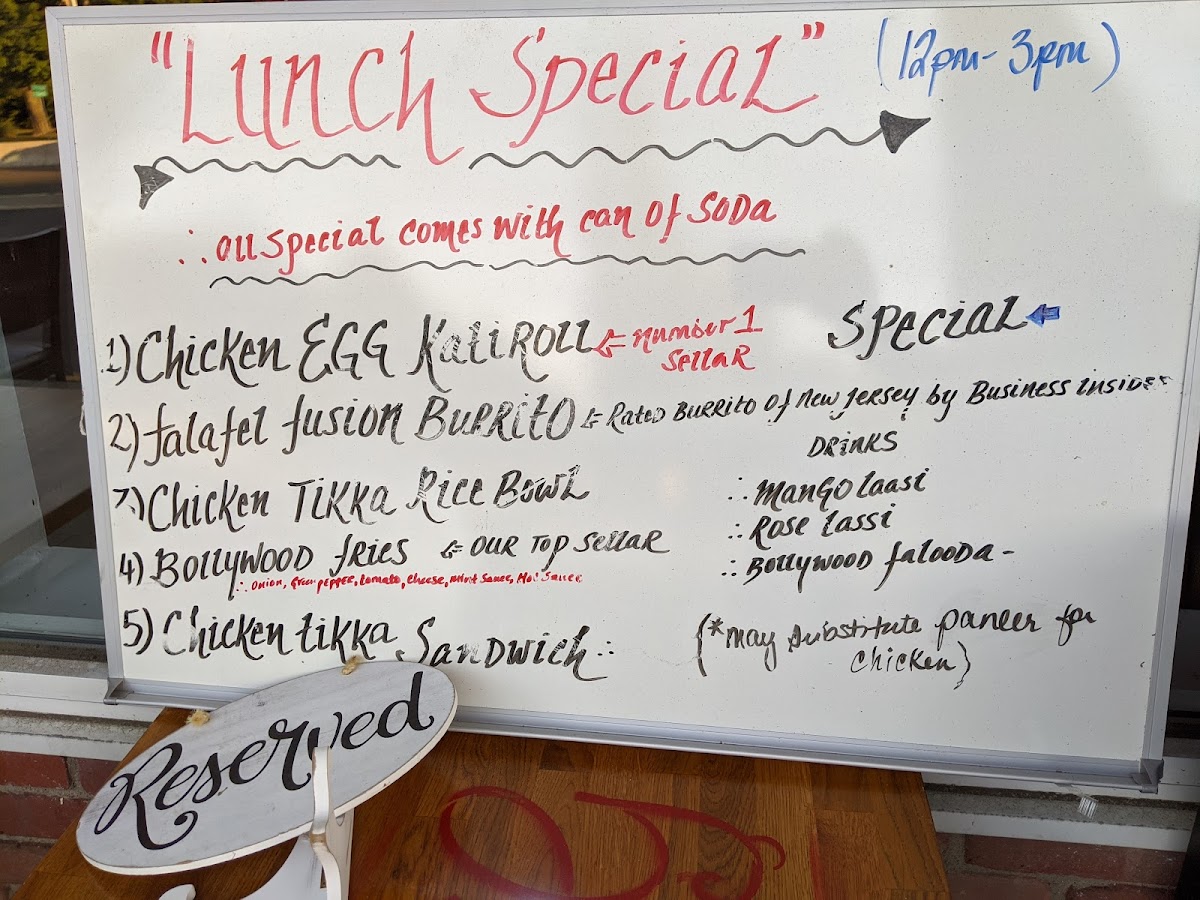 "Lunch Special" (12pm - 3pm)
∴ All Special comes with can of SoDa
1) Chicken EGG Kati Roll ⇐ number 1 SellaR
Special ⇐
2) falafel fusion Burrito ⇐ Rated Burrito of New Jersey by Business insider
DRINKS
3) Chicken Tikka Rice Bowl
∴ Mango laasi
∴ Rose lassi
4) Bollywood fries ⇐ Our Top SellaR
∴ Onion, Green pepper, tomato, cheese, Mint Sauce, Hot Sauce
∴ Bollywood falooda -
5) Chicken tikka Sandwich ∴
(*may substitute paneer for
chicken)
Reserved